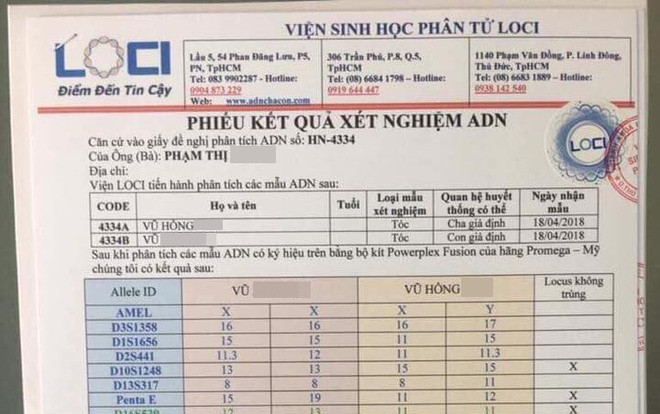 VIỆN SINH HỌC PHÂN TỬ LOCI
LOCI
Điểm Đến Tin Cậy
Lầu 5, 54 Phan Đăng Lưu, P5, PN, TpHCM
Tel: 083 9902287 - Hotline: 0904 873 229
Web: www.adnchacon.com
306 Trần Phú, P.8, Q.5, TpHCM
Tel: (08) 6684 1798 – Hotline: 0919 644 447
1140 Phạm Văn Đồng, P. Linh Đông, Thủ Đức, TpHCM
Tel: (08) 6683 1889 – Hotline: 0938 142 540
PHIẾU KẾT QUẢ XÉT NGHIỆM ADN
LOCI
Căn cứ vào giấy đề nghị phân tích ADN số: HN-4334
Của Ông (Bà): PHẠM THỊ
Địa chỉ:
Viện LOCI tiến hành phân tích các mẫu ADN sau:
CODE Họ và tên Tuổi Loại mẫu xét nghiệm Quan hệ huyết thống có thể Ngày nhận mẫu
4334A VŨ HỒNG Tóc Cha giả định 18/04/2018
4334B VŨ Tóc Con giả định 18/04/2018
Sau khi phân tích các mẫu ADN có ký hiệu trên bằng bộ kít Powerplex Fusion của hãng Promega – Mỹ
chúng tôi có kết quả sau:
Allele ID VŨ VŨ HỒNG Locus không trùng
AMEL X X X Y
D3S1358 16 16 16 17
D1S1656 15 15 11 15
D2S441 11.3 12 11 11.3
D10S1248 13 13 15 15 X
D13S317 8 8 8 11
Penta E 15 19 11 12 X